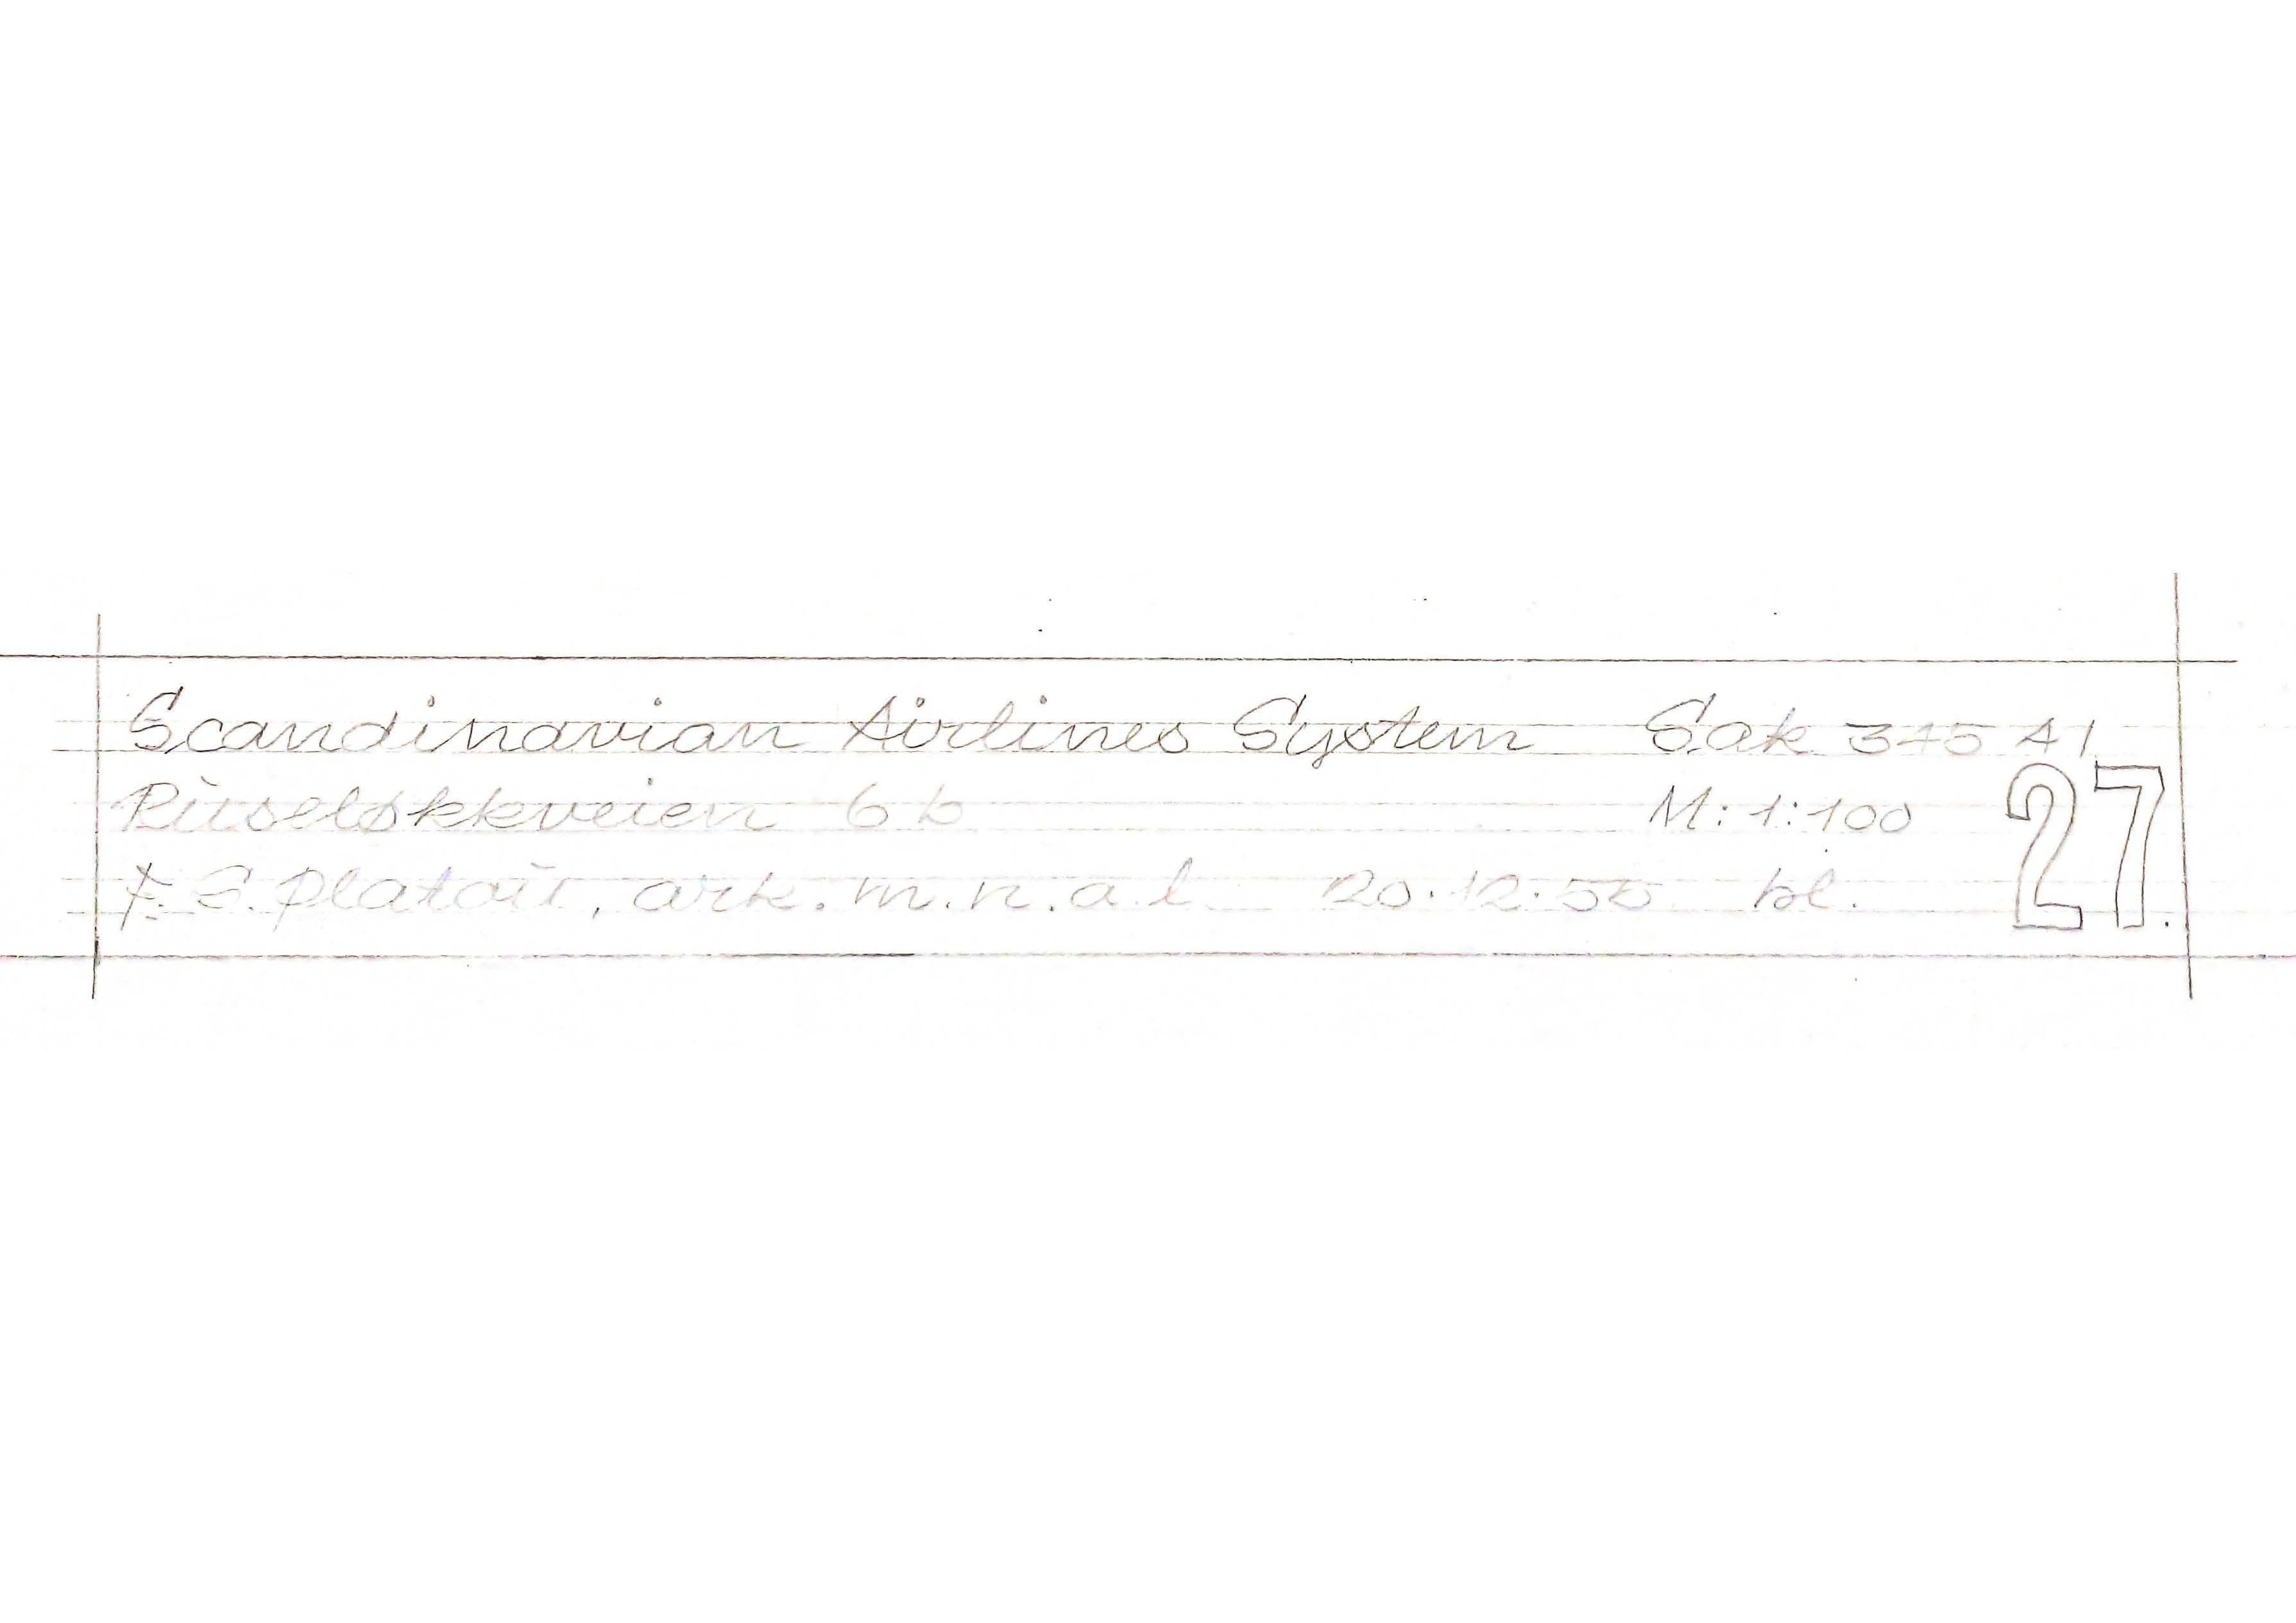 Scandinavian Airlines System Sak 375 A1
Ruseløkkveien 6 b M: 1:100
F. S. Platou, ark. m.n.a.l. 20.12.55 bl. 27.